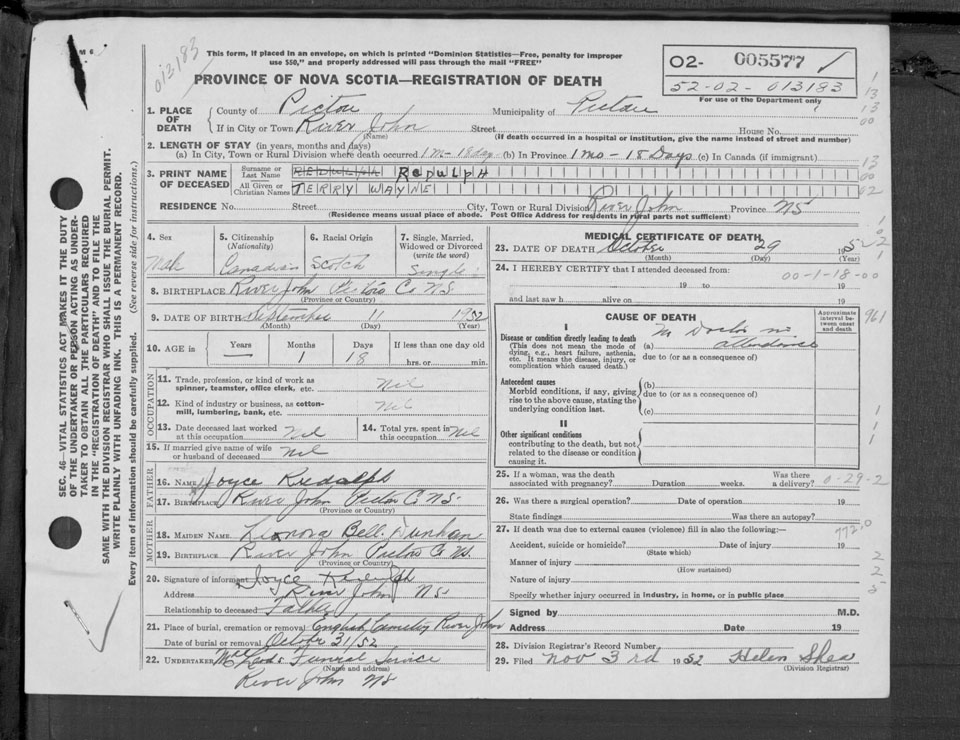 M 6
013183
This form, if placed in an envelope, on which is printed "Dominion Statistics—Free, penalty for improper
use $50," and properly addressed will pass through the mail "FREE"
PROVINCE OF NOVA SCOTIA—REGISTRATION OF DEATH
02- 005577 ✓
52-02-013183
For use of the Department only
1. PLACE OF DEATH
County of Pictou Municipality of Pictou
If in City or Town River John Street House No.
(Name) (If death occurred in a hospital or institution, give the name instead of street and number)
2. LENGTH OF STAY (in years, months and days)
(a) In City, Town or Rural Division where death occurred 1 m - 18 day (b) In Province 1 mo - 18 Days (c) In Canada (if immigrant)
3. PRINT NAME OF DECEASED
Surname or Last Name REDULPH
All Given or Christian Names TERRY WAYNE
RESIDENCE No. Street City, Town or Rural Division River John Province NS
(Residence means usual place of abode. Post Office Address for residents in rural parts not sufficient)
4. Sex
Male
5. Citizenship (Nationality)
Canadian
6. Racial Origin
Scotch
7. Single, Married, Widowed or Divorced (write the word)
Single
8. BIRTHPLACE River John Pictou Co NS
(Province or Country)
9. DATE OF BIRTH September 11 1952
(Month) (Day) (Year)
10. AGE in Years — Months 1 Days 18 If less than one day old
hrs. or min.
OCCUPATION
11. Trade, profession, or kind of work as spinner, teamster, office clerk, etc. Nil
12. Kind of industry or business, as cotton-mill, lumbering, bank, etc. Nil
13. Date deceased last worked at this occupation Nil
14. Total yrs. spent in this occupation Nil
15. If married give name of wife or husband of deceased Nil
FATHER
16. NAME Joyce Redulph
17. BIRTHPLACE River John Pictou C NS
(Province or Country)
MOTHER
18. MAIDEN NAME Bell
19. BIRTHPLACE River John Pictou Co NS.
(Province or Country)
20. Signature of informant Joyce Redulph
Address River John NS
Relationship to deceased Father
21. Place of burial, cremation or removal English Cemetery River John
Date of burial or removal October 31/52
22. UNDERTAKER McLeods Funeral Service
(Name and address)
River John NS
MEDICAL CERTIFICATE OF DEATH
23. DATE OF DEATH October 29 195
(Month) (Day) (Year)
24. I HEREBY CERTIFY that I attended deceased from:
00-1-18-00
19 to 19
and last saw h alive on 19
CAUSE OF DEATH
Approximate interval between onset and death
I
Disease or condition directly leading to death
(This does not mean the mode of dying, e.g., heart failure, asthenia, etc. It means the disease, injury, or complication which caused death.)
(a) No Doctor in attendance
due to (or as a consequence of)
Antecedent causes
Morbid conditions, if any, giving rise to the above cause, stating the underlying condition last.
(b)
due to (or as a consequence of)
(c)
II
Other significant conditions
contributing to the death, but not related to the disease or condition causing it.
25. If a woman, was the death associated with pregnancy? Duration weeks. Was there a delivery? 0-29-2
26. Was there a surgical operation? Date of operation 19
State findings Was there an autopsy?
27. If death was due to external causes (violence) fill in also the following:—
Accident, suicide or homicide? Date of injury 19
(State which)
Manner of injury
(How sustained)
Nature of injury
Specify whether injury occurred in industry, in home, or in public place
Signed by M.D.
Address Date 19
28. Division Registrar's Record Number
29. Filed Nov 3rd 1952 Helen Shea
(Division Registrar)
SEC. 46—VITAL STATISTICS ACT MAKES IT THE DUTY
OF THE UNDERTAKER OR PERSON ACTING AS UNDER-
TAKER TO OBTAIN ALL THE PARTICULARS REQUIRED
IN THE "REGISTRATION OF DEATH" AND TO FILE THE
SAME WITH THE DIVISION REGISTRAR WHO SHALL ISSUE THE BURIAL PERMIT.
WRITE PLAINLY WITH UNFADING INK. THIS IS A PERMANENT RECORD.
Every item of information should be carefully supplied. (See reverse side for instructions.)
1
13
13
00
13
00
02
961
1
1
1
2
2